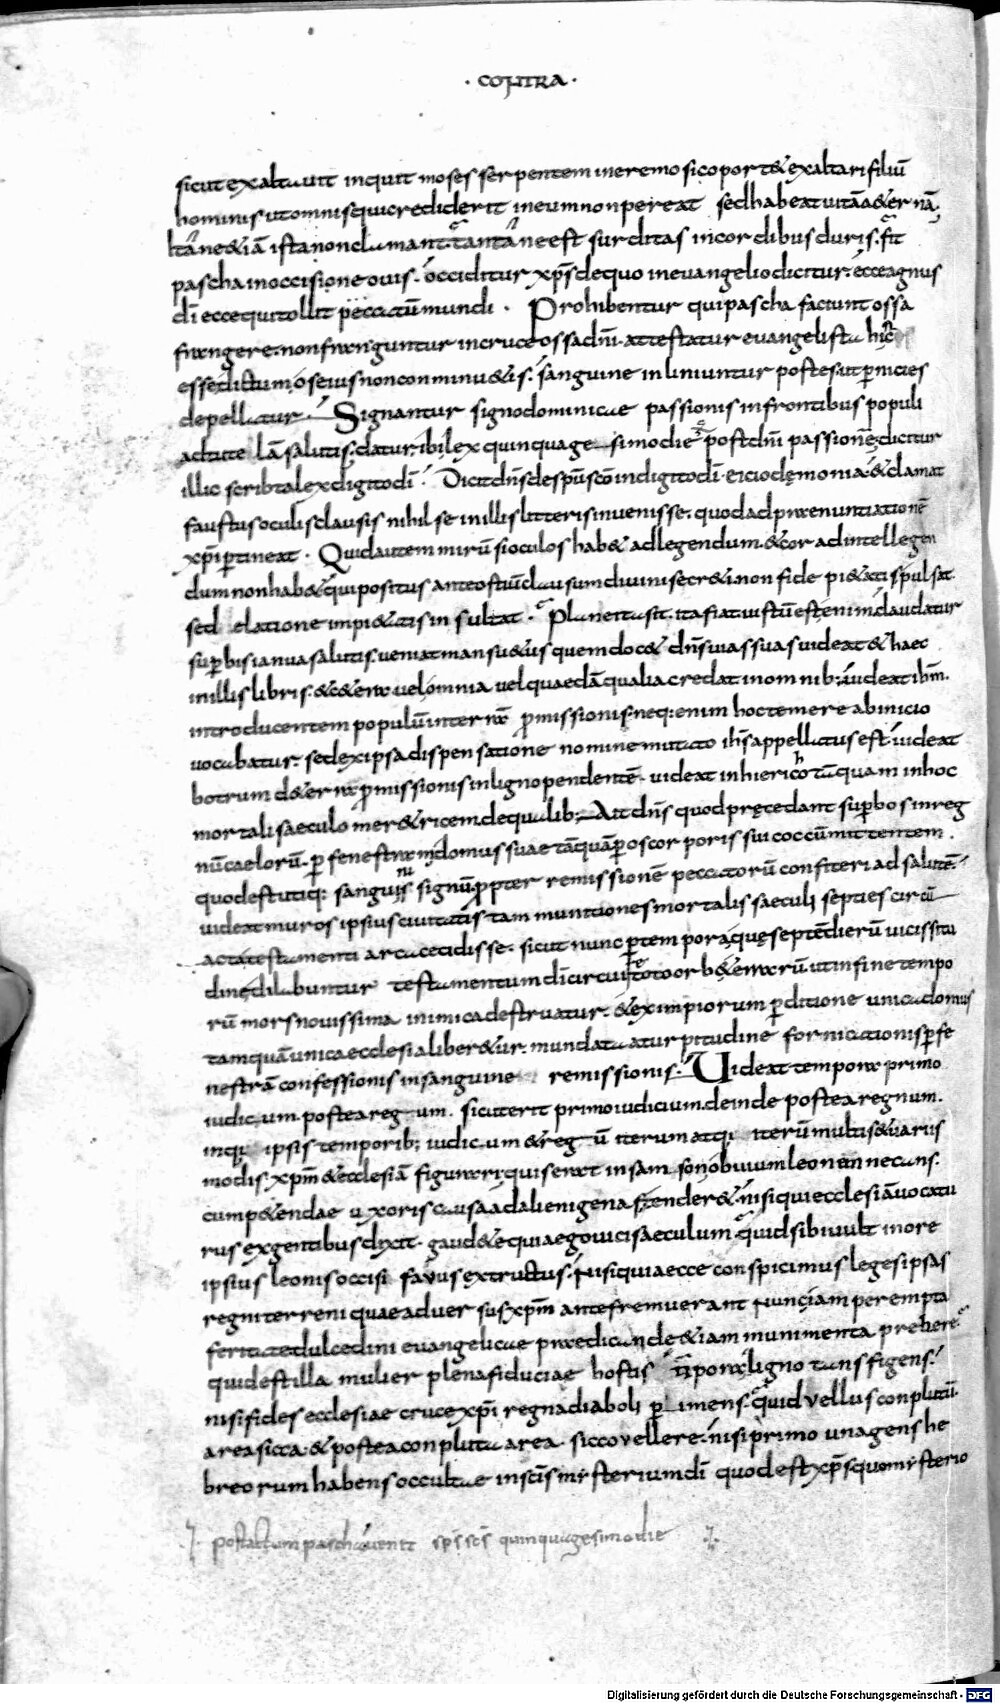 · CONTRA ·
sicut exaltauit inquit moses serpentem in eremo sic oport& exaltari filiū
hominis ut omnis qui crediderit in eum non pereat sed habeat uitā aeternā
&iā ista non clamant tanta ne est surditas in cordibus duris. fit
pascha in occisione ouis. occiditur xp̄s de quo in euangelio dicitur. ecce agnus
dī ecce qui tollit peccatū mundi · Prohibentur qui pascha faciunt ossa
frangere. non franguntur in cruce ossa dn̄i. attestatur euangelista hic
esse dictum os eius non conminu&is. sanguine inliniuntur postes ut pernicies
depellatur. Signantur signo dominicae passionis in frontibus populi
ad tutelā salutis. datur ibi lex quinquagesimo die post dn̄i passionē dicitur
illic scribta lex digito dī. Dicit dn̄s de spū scō in digito dī eicio demonia. & clamat
faustus oculis clausis nihil se in illis litteris inuenisse. quod ad praenuntiationē
xp̄i p̱tineat · Quid autem mirū si oculos hab& ad legendum & cor ad intellegen
dum non hab& qui positus ante ostiū clausum diuini secr&i. non fide pi&atis pulsat
sed elatione impi&atis insultat. Plane ita sit. ita fiat iustū est enim claudatur
sup̱bis ianua salutis. ueniat mansu&us quem doc& dn̄s uias suas uideat & haec
in illis libris. & c&era uel omnia uel quaedā qualia credat in omnib; uideat ihm̄.
introducentem populū in terrā p̱missionis. neq; enim hoc temere ab inicio
uocabatur. sed ex ipsa dispensatione nomine mutato ih̄s appellatus est. uideat
botrum de terra p̱missionis in ligno pendentē. uideat in hiericho tāquam in hoc
mortali saeculo mer&ricem. de qualib; Ait dn̄s quod precedant sup̱bos in reg
nū caelorū. p̱ fenestram domus suae tāquā p̱ os corporis sui coccū mittentem.
quod est utiq; sanguinis signū p̱pter remissionē peccatorū confiteri ad salutē.
uideat muros ipsius ciuitatis tam munitiones mortalis saeculi septies circū
acta testamenti arca cecidisse. sicut nunc p̱ tempora que septē dierū uicissitu
dine dilabuntur testamentum dī circuit toto orbe terrarū ut in fine tempo
rū mors nouissima inimica destruatur. & ex impiorum p̱ditione unica domus
tamquā unica ecclesia liber&ur. mundata a turpitudine fornicationis p̱ fe
nestrā confessionis in sanguine remissionis. Uideat tempora primo
iudicum. postea regum. sicut erit primo iudicium. deinde postea regnum.
inq; ipsis temporib; iudicum & regū iterum atq; iterū multis & uariis
modis. xp̄m & ecclesiā figurari. quis erat in samson obuium leonem necans.
cum p&endae uxoris causa ad alienigenas tender&. nisi qui ecclesiā uocatu
rus ex gentibus dixit. gaud&e quia ego uici saeculum. quid sibi uult in ore
ipsius leonis occisi fauus extructus. nisi quia ecce conspicimus leges ipsas
regni terreni quae aduersus xp̄m ante fremuerant nunc iam perempta
feritate dulcedini euangelicae praedicandae &iam munimenta prebere.
quid est illa mulier plena fiduciae hostis tempora ligno transfigens.
nisi fides ecclesiae cruce xp̄i regna diaboli p̱imens. quid vellus conplutū
area sicca. & postea conpluta area sicco vellere. nisi primo una gens he
breorum habens occulte in scīs mysterium dī quod est xp̄s quo mysterio
post actum pascha uenit sp̄s scs̄ quinquagesimo die